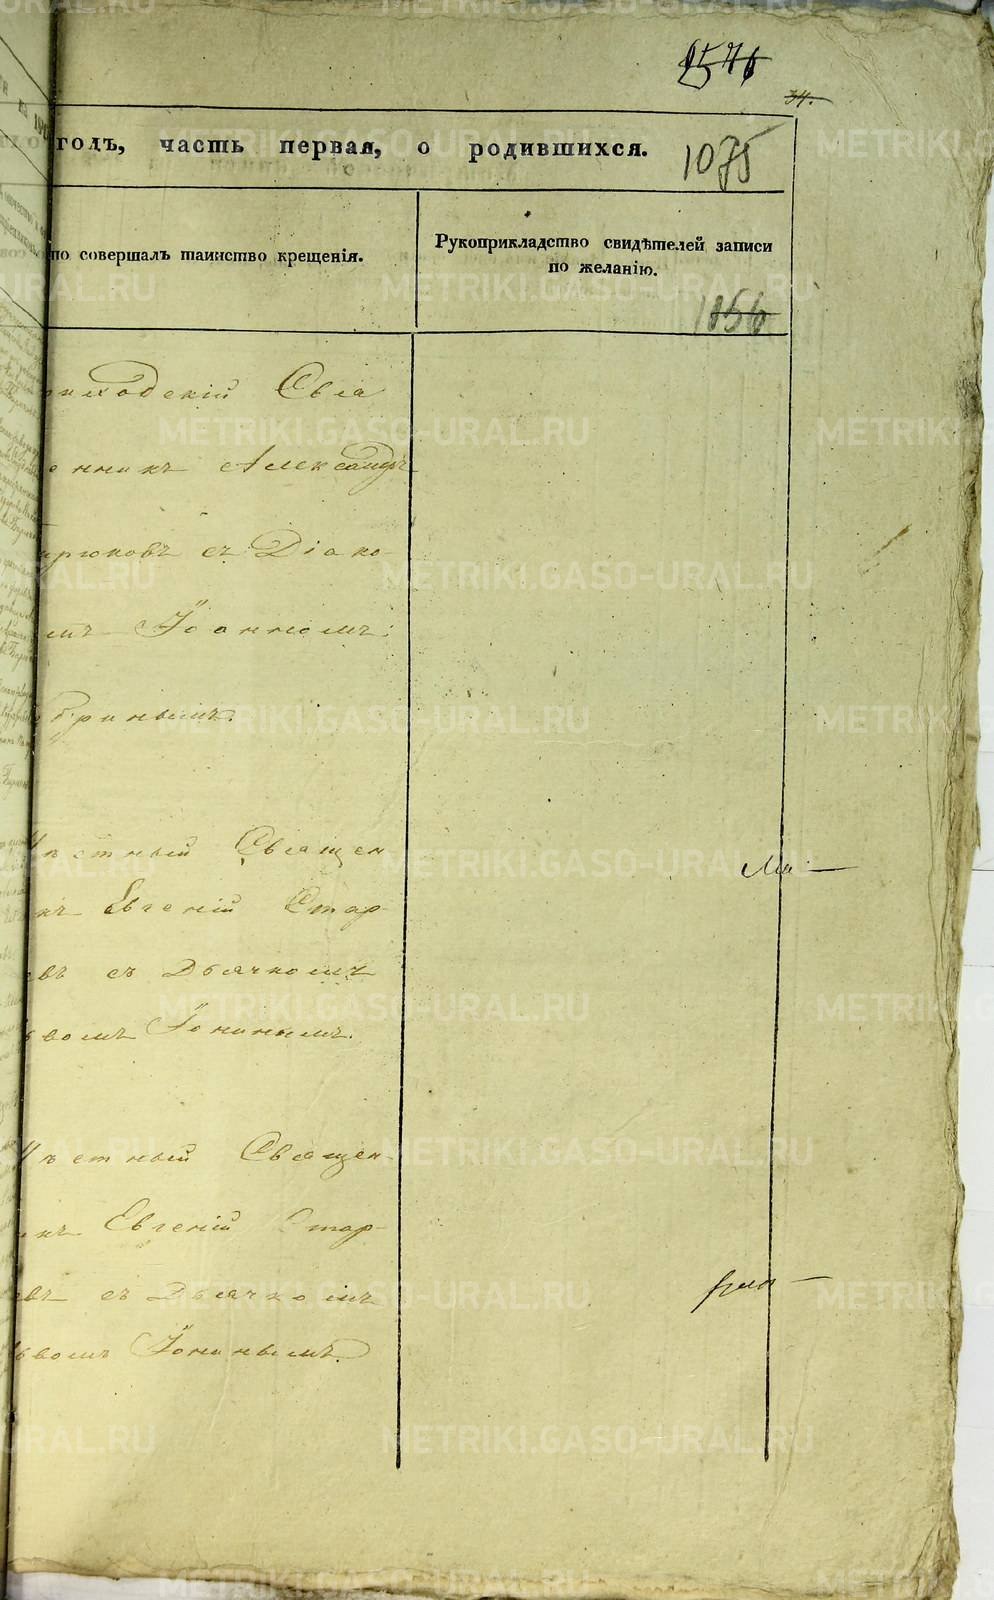 1576
34.
годъ, часть первая, о родившихся.
1075
то совершалъ таинство крещенія.
Рукоприкладство свидѣтелей записи
по желанію.
1056
риходскій Свя
енникъ Александръ
ирюковъ съ Діако-
мъ Іоанномъ
бринымъ.
Мѣстный Священ
икъ Евгеній Стар-
въ съ Дьячкомъ
вомъ Іонинымъ.
Мѣстный Священ-
икъ Евгеній Стар-
въ съ Дьячкомъ
ьвомъ Іонинымъ.
METRIKI.GASO-URAL.RU